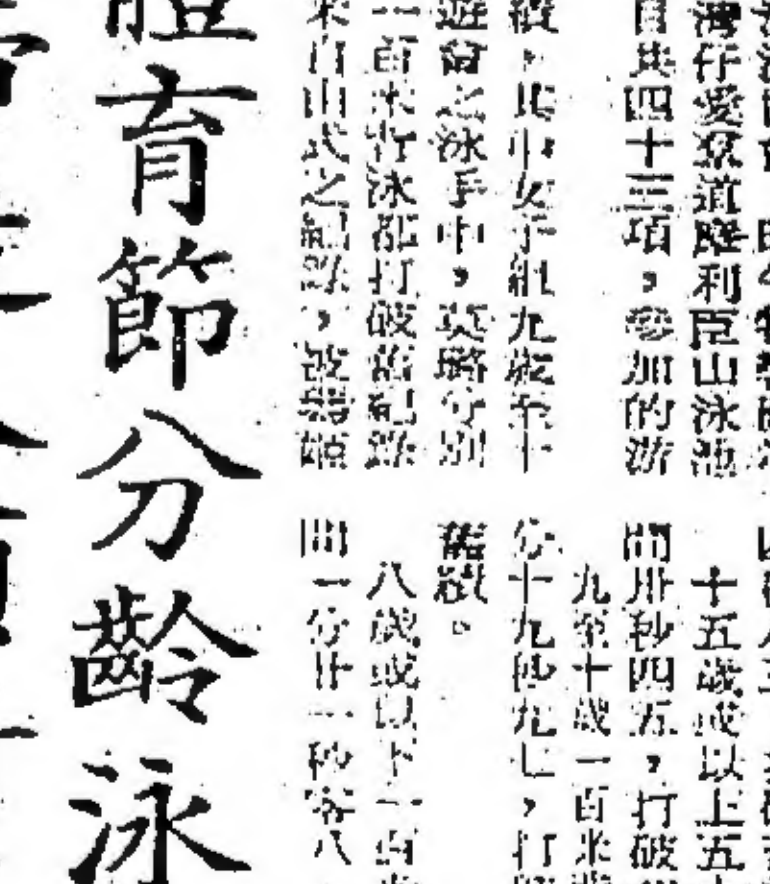 灣仔愛羣道摩利臣山泳池
目共四十三項，參加的游
績，其中女子組九歲至十
遊會之泳手中，莫璐分別
一百米背泳都打破舊紀錄
米自由式之紀錄，被
十五歲或以上五
間卅秒四五，打破
九至十歲一百米
分十九秒九七，打
舊績。
八歲或以下一百
間一分廿一秒零八
體育節分齡泳